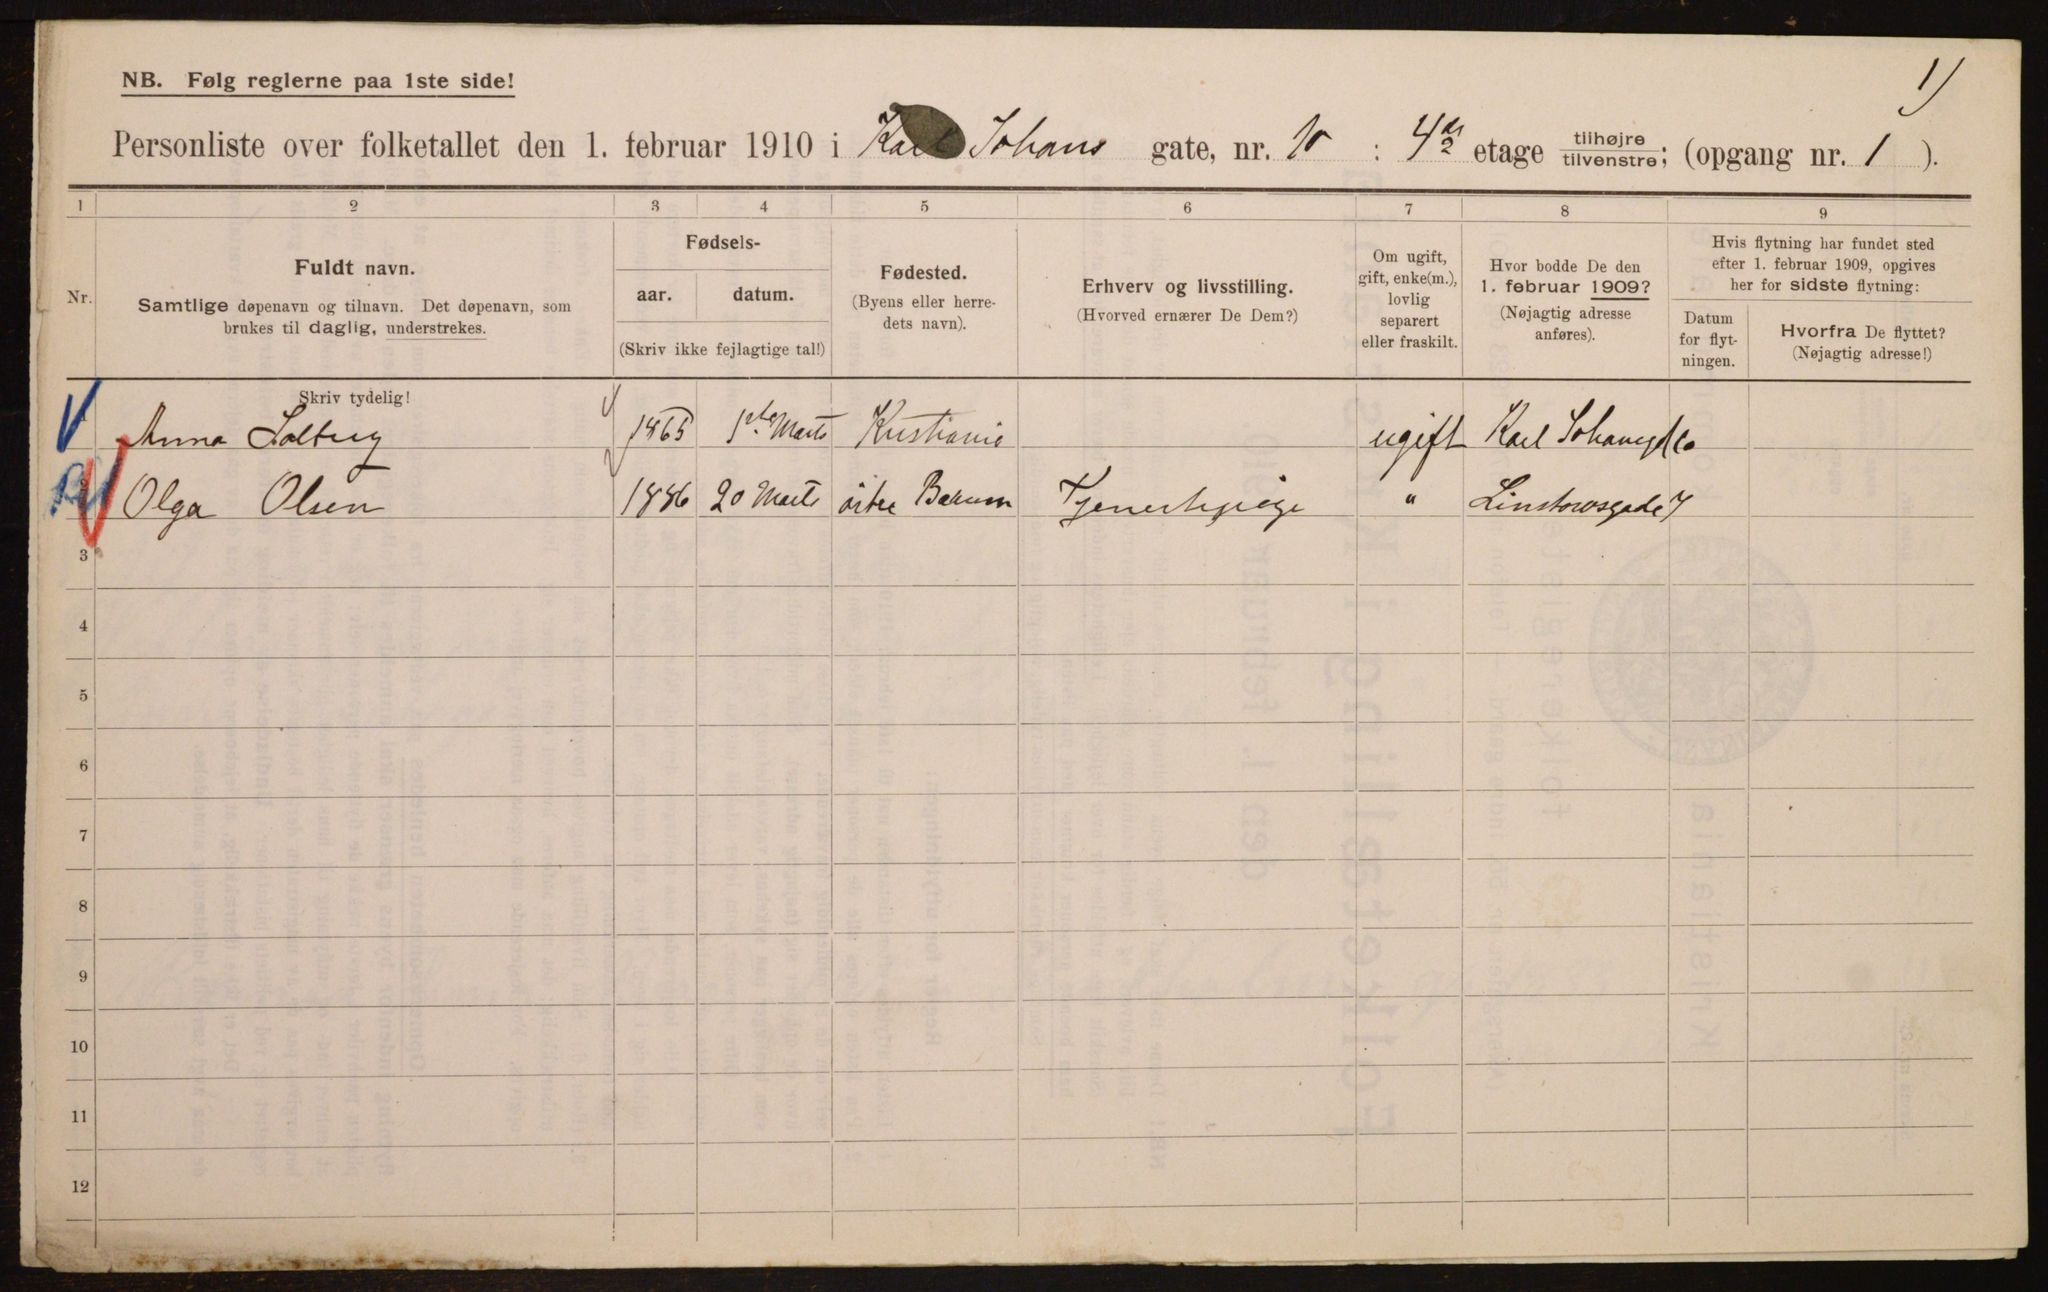 1)
NB. Følg reglerne paa 1ste side!
Personliste over folketallet den 1. februar 1910 i Karl Johans gate, nr. 10 : 4de etage tilhøjre tilvenstre; (opgang nr. 1 ).
1 2 3 4 5 6 7 8 9
Nr.
Fuldt navn.
Samtlige døpenavn og tilnavn. Det døpenavn, som
brukes til daglig, understrekes.
Fødsels-
aar. datum.
(Skriv ikke fejlagtige tal!)
Fødested.
(Byens eller herre-
dets navn).
Erhverv og livsstilling.
(Hvorved ernærer De Dem?)
Om ugift,
gift, enke(m.),
lovlig
separert
eller fraskilt.
Hvor bodde De den
1. februar 1909?
(Nøjagtig adresse
anføres).
Hvis flytning har fundet sted
efter 1. februar 1909, opgives
her for sidste flytning:
Datum
for flyt-
ningen.
Hvorfra De flyttet?
(Nøjagtig adresse!)
Skriv tydelig!
Anna Solberg 1865 1ste Marts Kristiania ugift Karl Johansgd 10
Olga Olsen 1886 20 Marts östre Bærum Tjenestepige " Linstowsgade 7
3
4
5
6
7
8
9
10
11
12